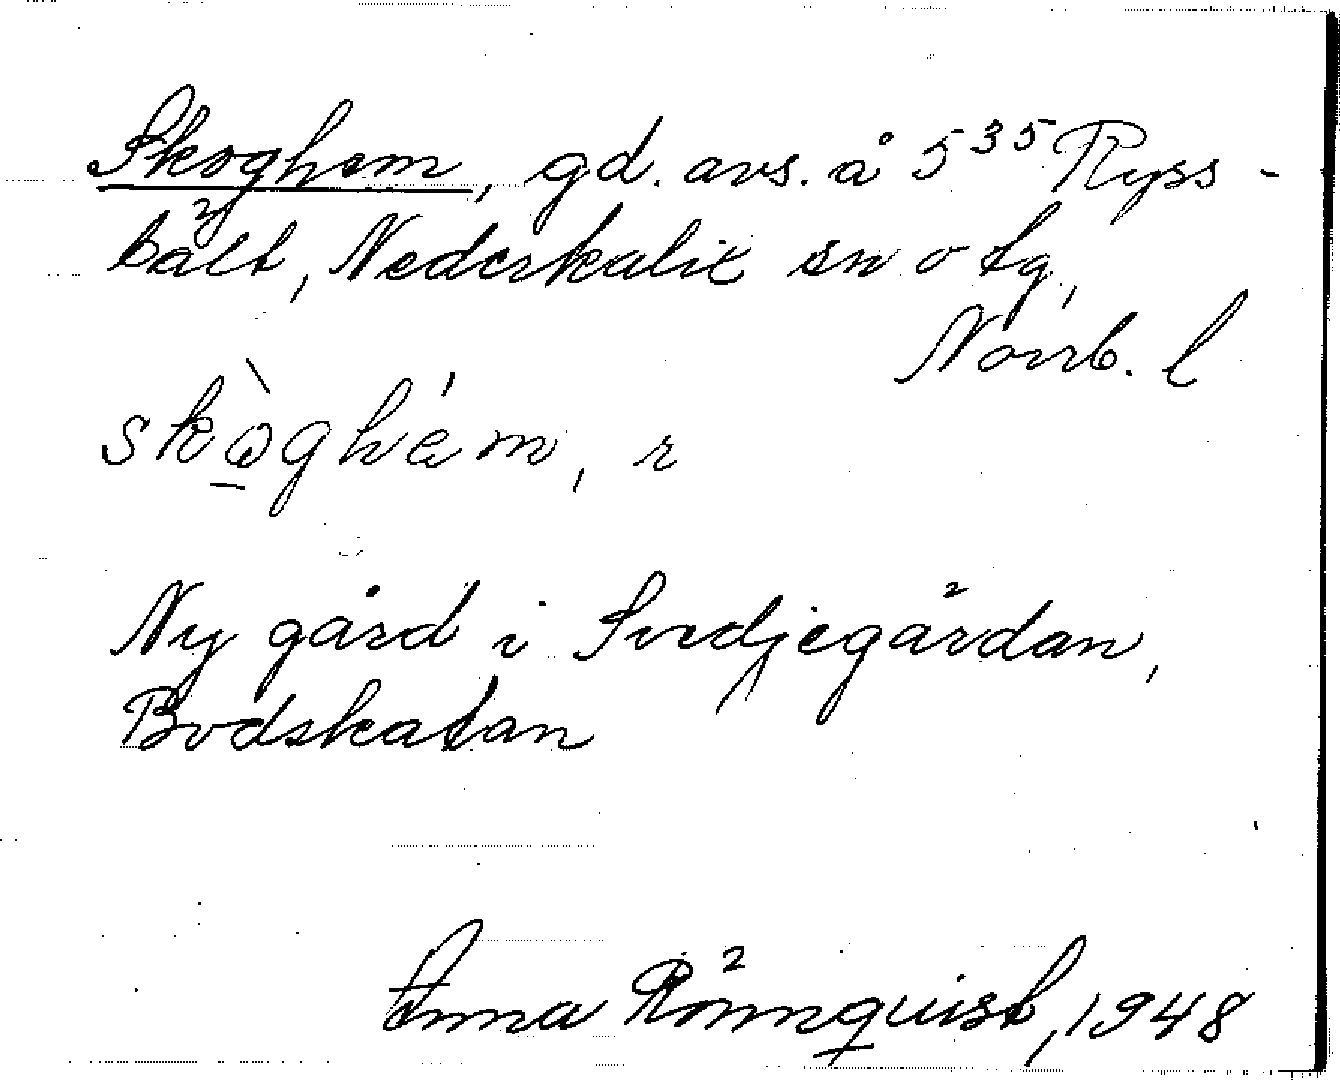 Skoghem, gd. avs. å 5³⁵ Ryss-
bält, Nederkalix sn o tg,
Norrb. l
skòghém, r
Ny gård i Svedjegärdan,
Bodskatan
Anna Rönnquist, 1948